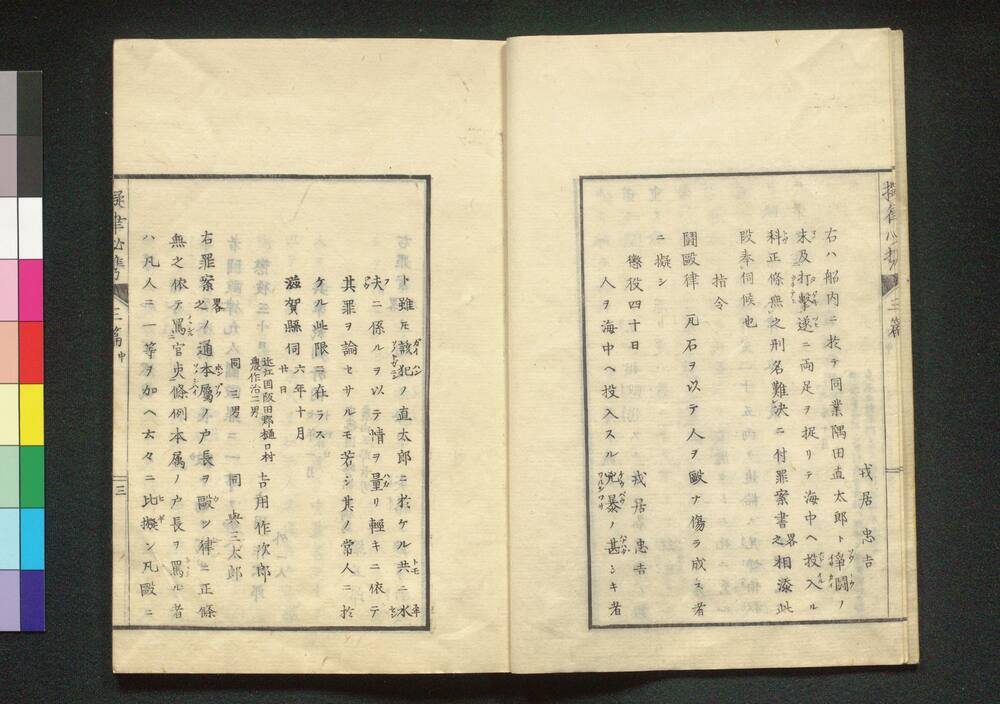 戎居忠吉
右ハ船内ニ於テ同業隅田直太郎ト争闘ノ
末及打撃遂ニ両足ヲ捉リテ海中ヘ投入ル
科正條無之刑名難决ニ付罪案書之畧相添此
段奉伺候也
指令
闘毆律瓦石ヲ以テ人ヲ毆ナ傷ヲ成ス者
ニ擬シ
懲役四十日 戎居忠吉
人ヲ海中ヘ投入スル兇暴ノ甚シキ者
ト雖モ該犯ノ直太郎ニ於ケル共ニ水
夫ニ係ルヲ以テ情ヲ量リ輕キニ依テ
其罪ヲ論セサルモ若シ其ノ常人ニ於
ケル此限ニ在ラス
滋賀縣伺 六年十月廿日
近江国阪田郡樋口村
農作治二男 占用作次郎
同三男 同與三太郎
右罪案之畧ノ通本屬ノ户長ヲ毆ツ律ニ正條
無之依テ罵官吏條例本属ノ户長ヲ罵ル者
ハ凡人ニ一等ヲ加ヘ云々ニ比擬シ凡毆ニ
三篇
三篇 中
三